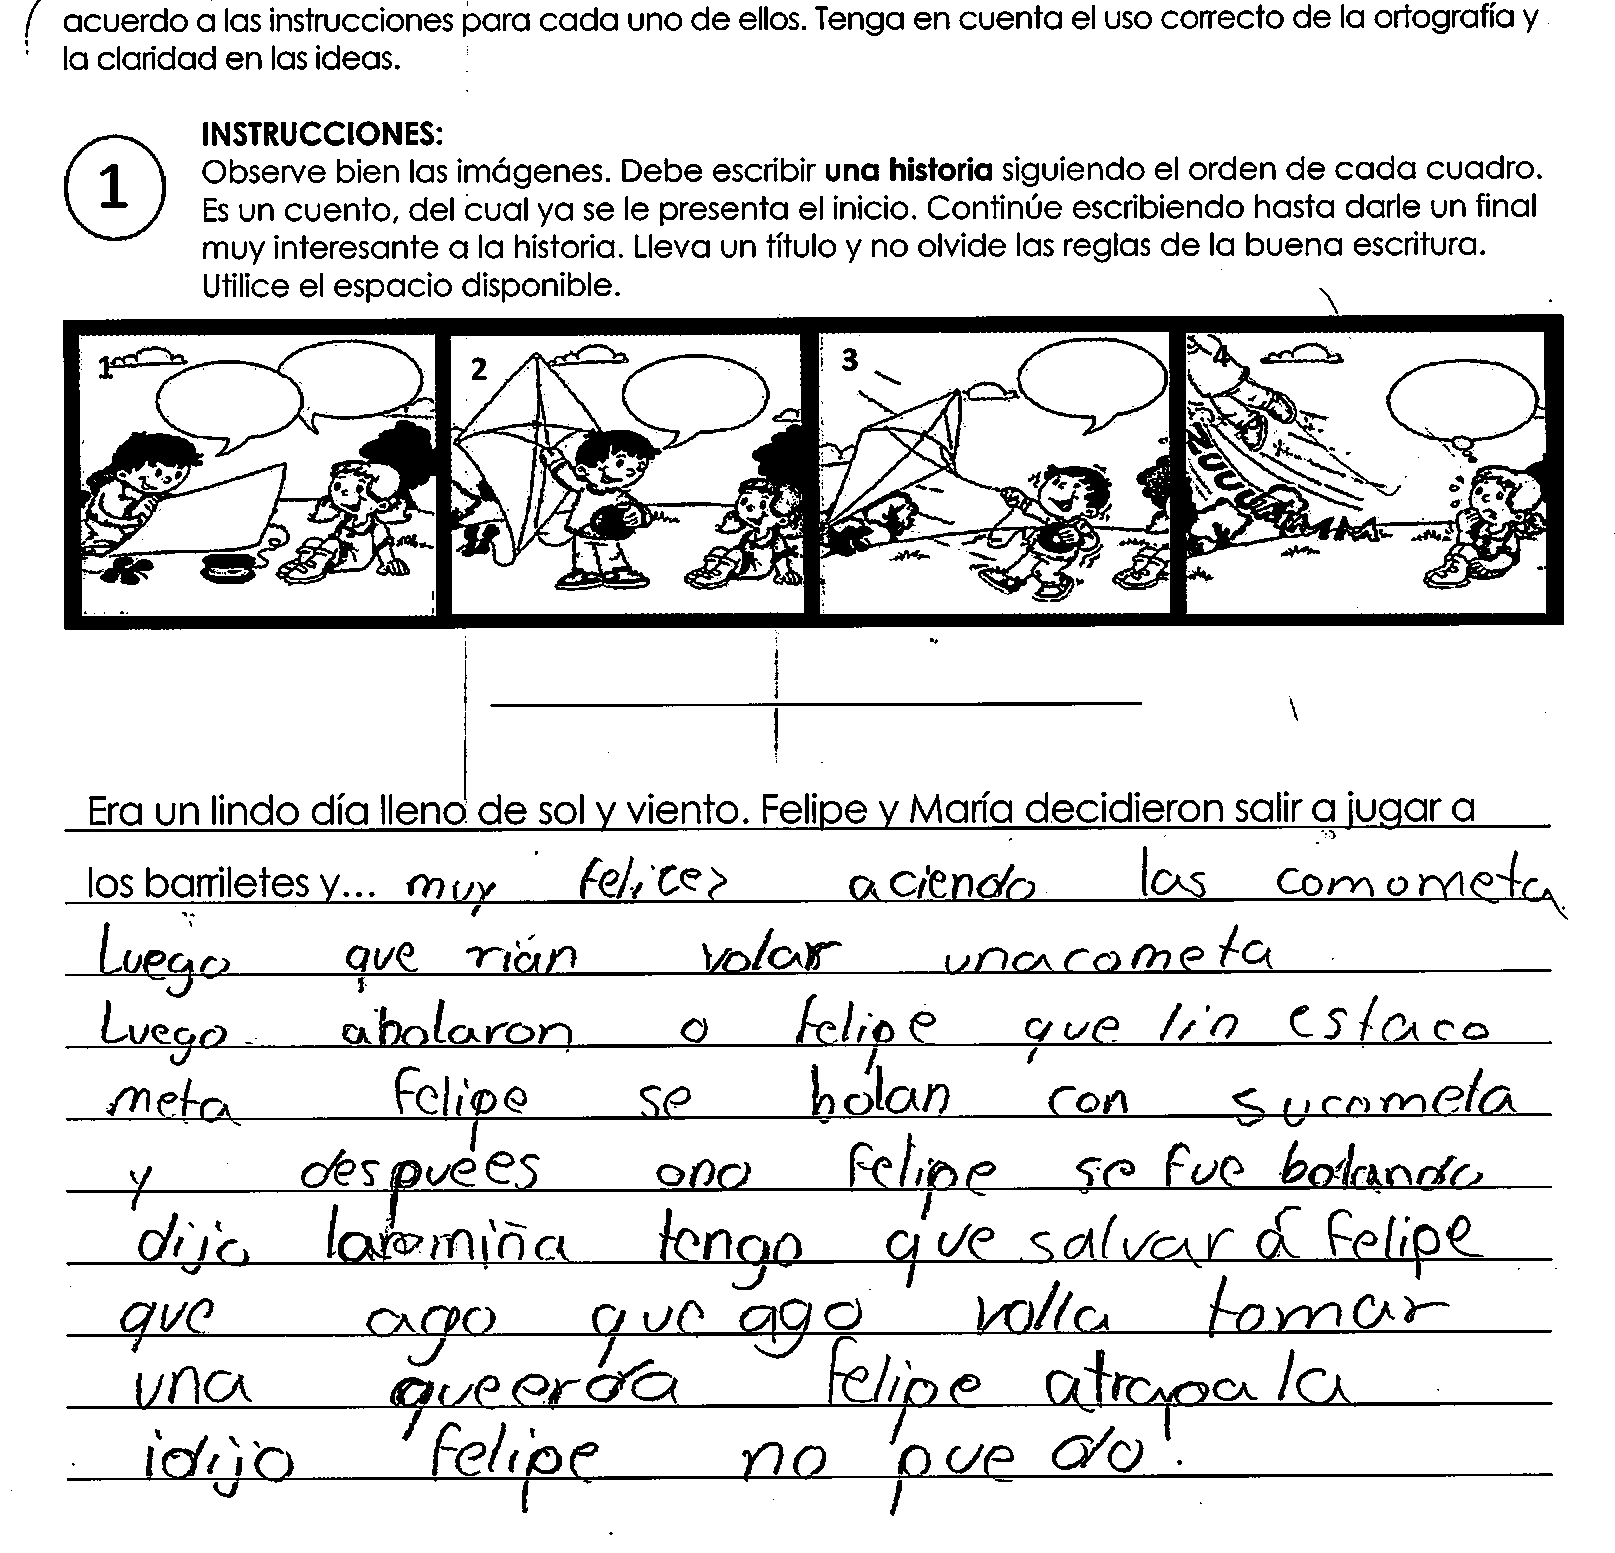 acuerdo a las instrucciones para cada uno de ellos. Tenga en cuenta el uso correcto de la ortografía y
la claridad en las ideas.
1
INSTRUCCIONES:
Observe bien las imágenes. Debe escribir una historia siguiendo el orden de cada cuadro.
Es un cuento, del cual ya se le presenta el inicio. Continúe escribiendo hasta darle un final
muy interesante a la historia. Lleva un título y no olvide las reglas de la buena escritura.
Utilice el espacio disponible.
1 2 3 4
Era un lindo día lleno de sol y viento. Felipe y María decidieron salir a jugar a
los barriletes y... muy felices aciendo las comometa
Luego que rian volar unacometa
Luego abolaron o felipe que lin estaco
meta Felipe se bolan con sucometa
y despuées ono Felipe se fue bolando
dijo la miña tengo que salvar a Felipe
que ago que ago volla tomar
una queerda felipe atrapa la
idijo felipe no pue do.